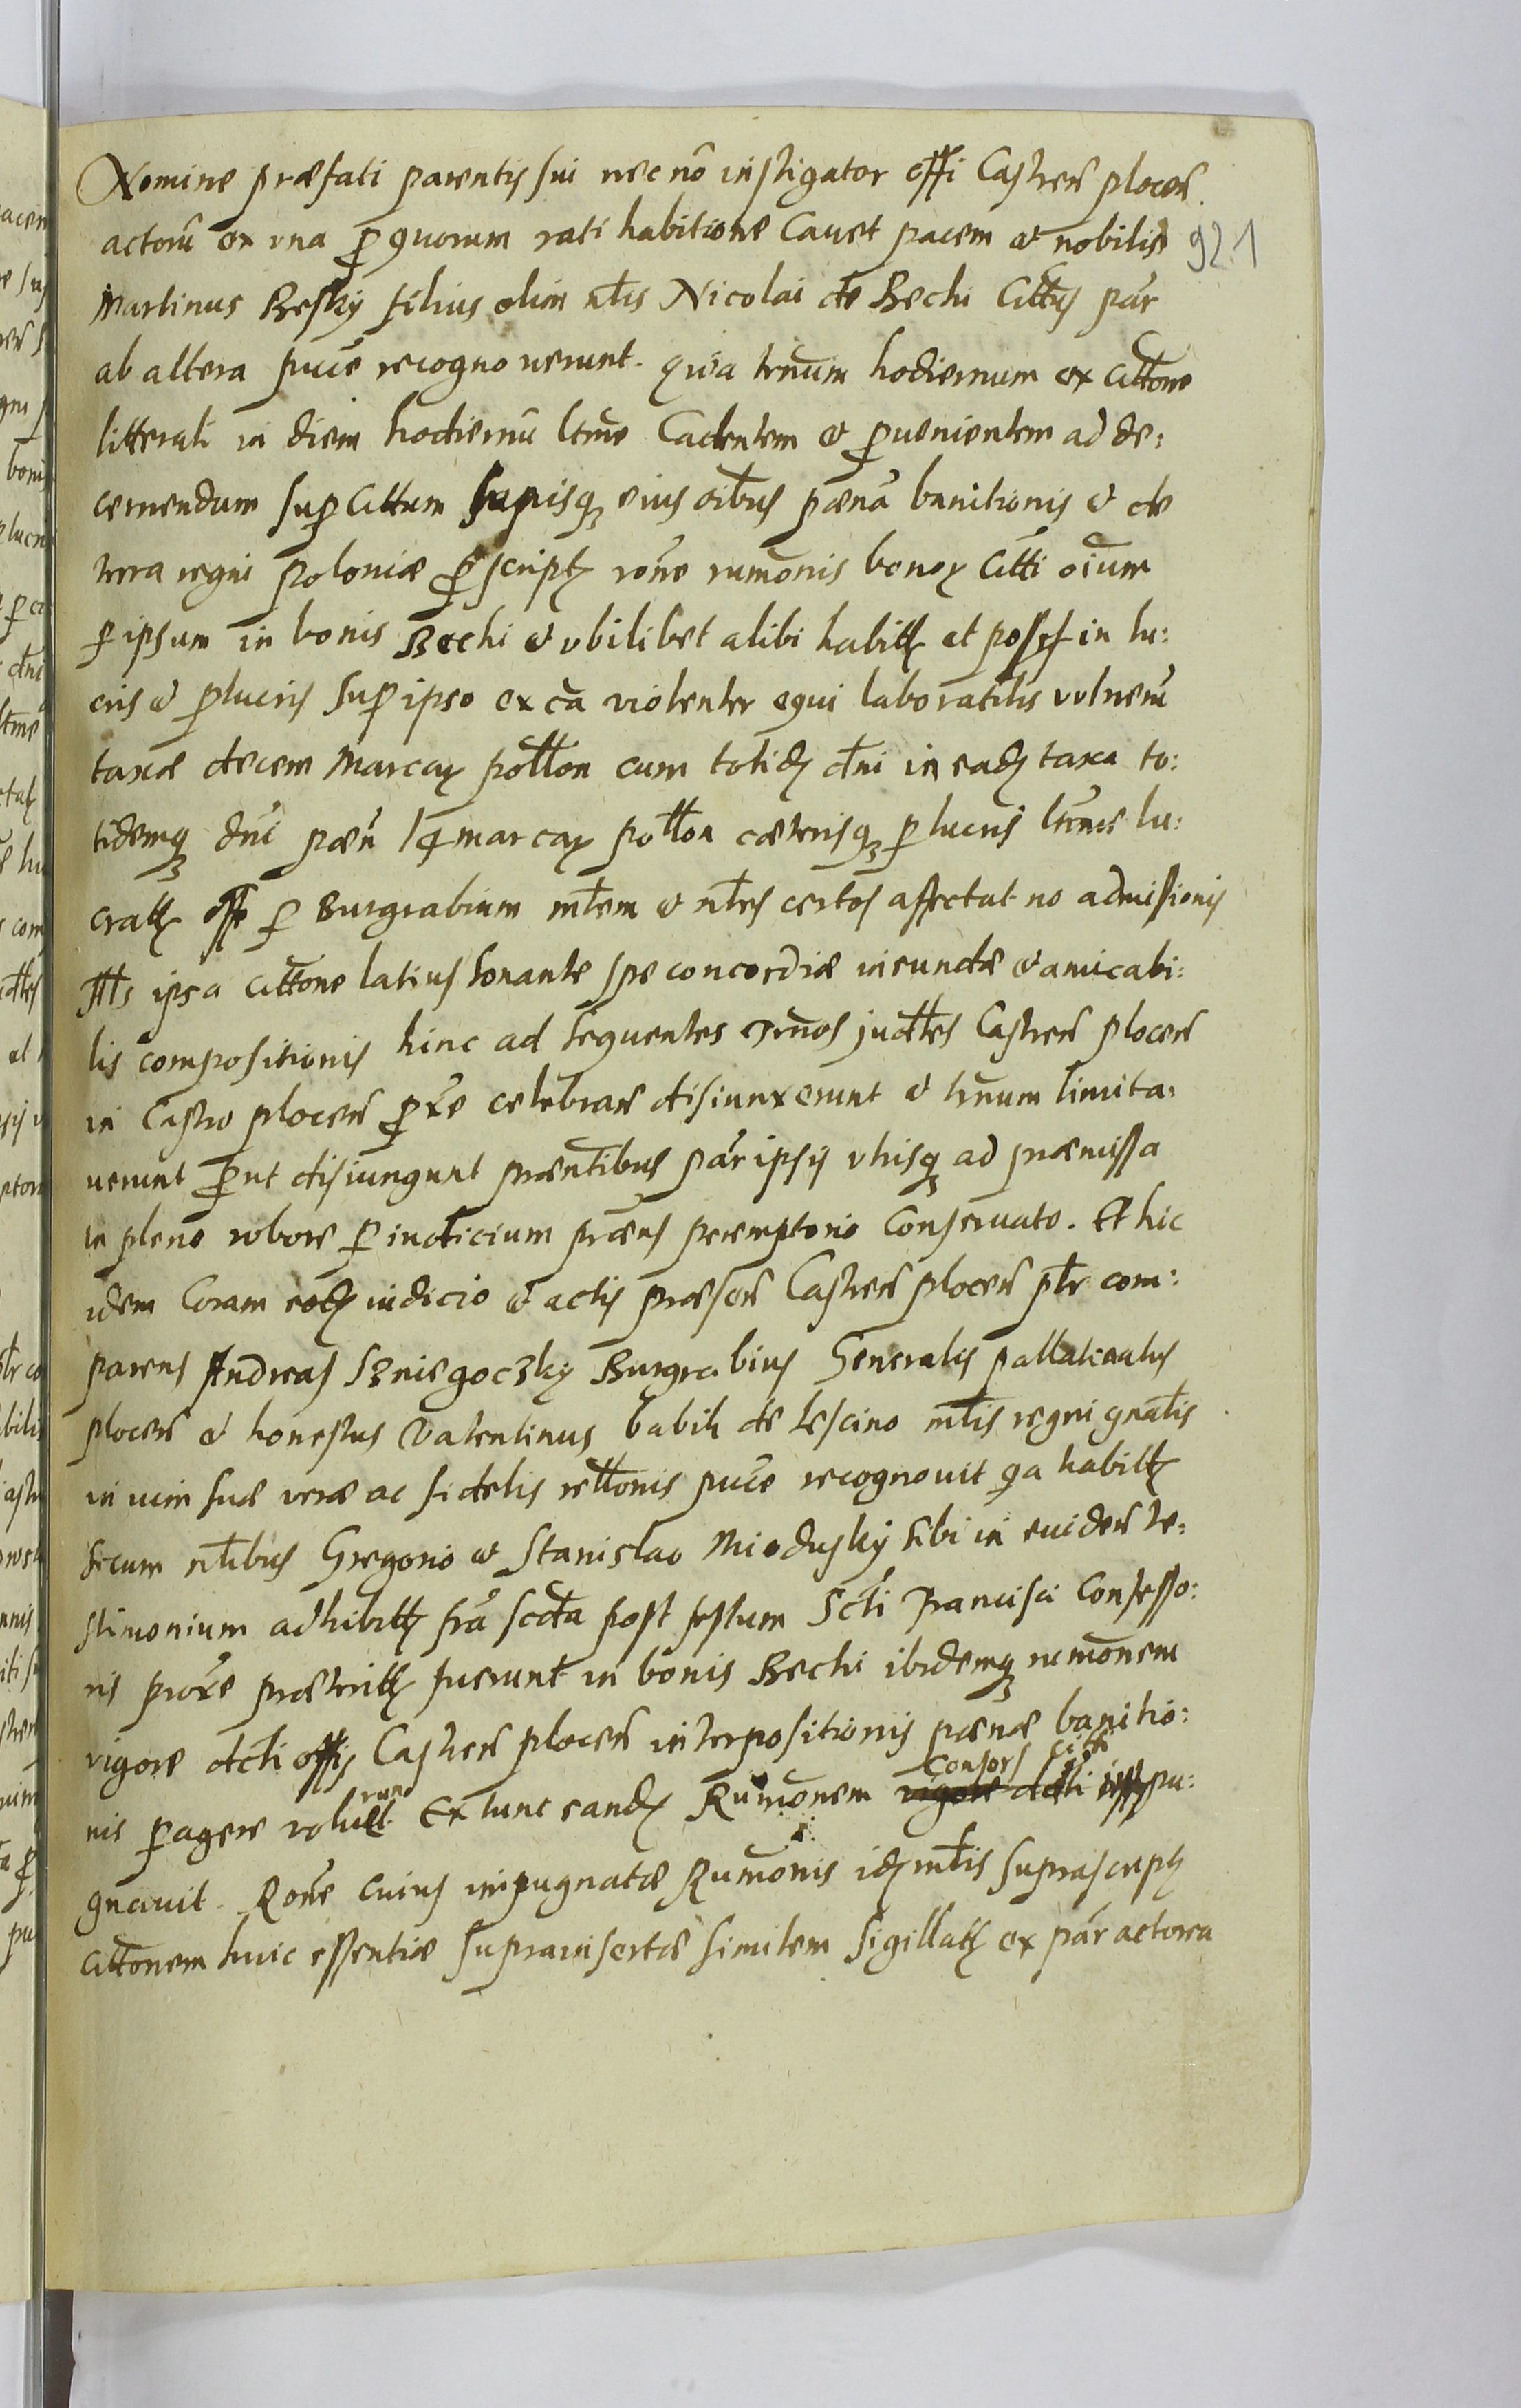 Nomine præfati parentis sui nec nō instigator offi Castreñ ploceñ.
actorū ex vna p quorum rati habitione Cauet pacem et nobilis
921
Martinus Besky filius olim nłis Nicolai de Bechi Cittus par
ab altera pūce recognouerunt. quia trnum hodiernum ex cittone
litterali in diem hodiernū ltme Cadentem et puenientem ad de:
cernendum sup Cittum bonisq eius oibus pœnā banitionis et de
terra regni Poloniæ pscript rōne rumonis bonor Citti oium
p ipsum in bonis Bechi et vbilibet alibi habitt et poss in lu:
cris et plucris sup ipso ex cā violenter equi laboratilis vulnerū
taxæ decem Marcar pollon cum totid dni in ead taxa to:
tidemq dni pœn 14 marcar pollon cæterisq plucris ltme lu:
cratt offe p Burgrabium mtem et nłes certos affectat no admissionis
ipsa cittone latius sonante spe concordiæ ineundæ et amicabi:
lis compositionis hinc ad sequentes trnos judtles Castreñ ploceñ
in Castro ploceñ pxe celebrare disiunxerunt et trnum limita:
uerunt put disiungunt præntibus par ipsis vtrisq ad præmissa
in pleno robore p iudicium præns peremptorio Conseruato. Et hic
idem Coram eod iudicio et actis præsen Castreñ ploceñ ptr com:
parens Andreas Szniegoczky Burgrabius Generalis pallatinatus
ploceñ et honestus Valentinus babik de Lescino mtis regni gnalis
in vim suæ veræ ac fidelis rellonis puce recognouit qa habitt
secum ntibus Gregorio et Stanislao Miodusky sibi in euiden te:
stimonium adhibitt fra scda post festum Scti Francisci Confesso:
ris proxe præteritt fuerunt in bonis Bechi ibidemq rumonem
vigore dcti offis Castreñ ploceñ interpositionis pœnæ banitio:
nis pagere voluerunt Ex tunc eand Rumonem Consors citti impu:
gnauit. Rone cuius impugnatæ Rumonis id mtis suprascrpt
cittonem huic essentiæ suprainsertæ similem sigillatt ex par actorea